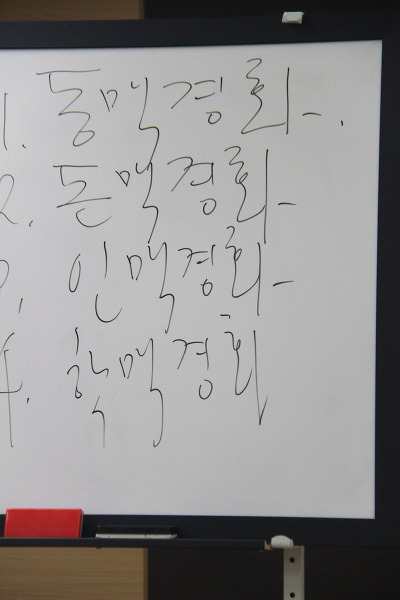 1. 동맥경화.
2. 돈맥경화
3. 인맥경화
4. 학맥경화